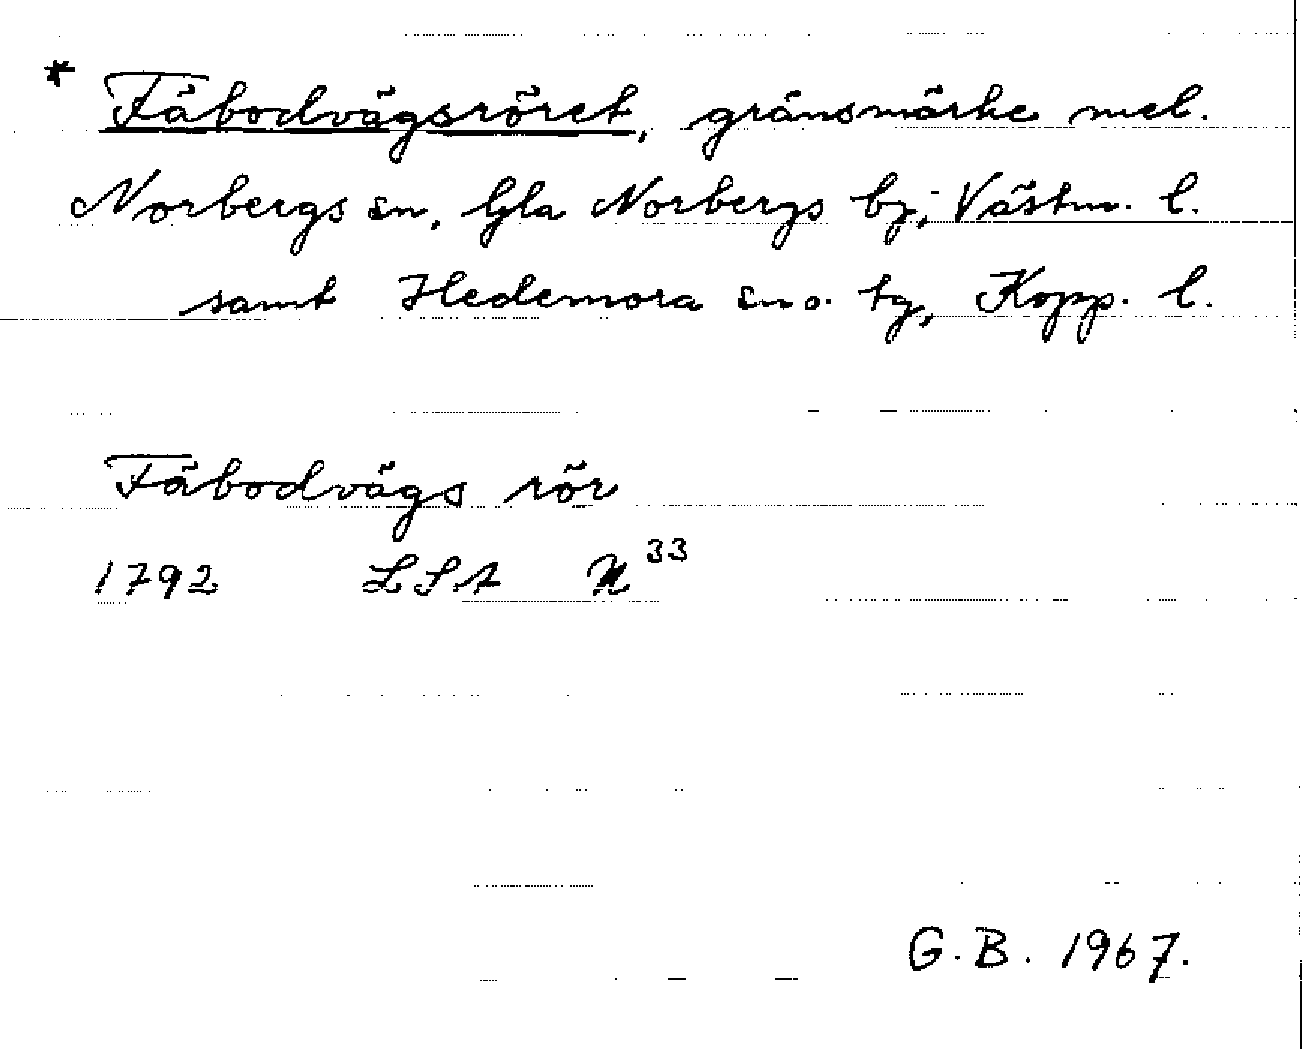 * Fäbodvägsröret, gränsmärke mel.
Norbergs sn, Gla Norbergs by, Västm. l.
samt Hedemora sn o. tg, Kopp. l.
Fäbodvägs rör
1792 LSA N³³
G.B. 1967.